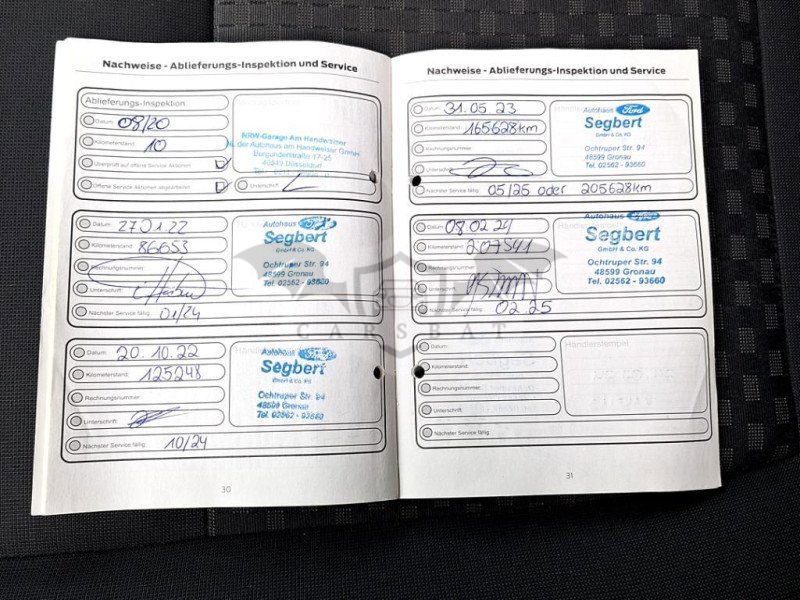 Nachweise - Ablieferungs-Inspektion und Service
Ablieferungs-Inspektion
Datum: 08/20
Kilometerstand: 10
Überprüft auf offene Service Aktionen
Offene Service Aktionen abgearbeitet
Unterschrift:
NRW-Garage Am Handweiser
der Autohaus am Handweiser GmbH
Burgunderstraße 17-25
40549 Düsseldorf
Datum: 27.01.22
Kilometerstand: 86653
Rechnungsnummer:
Unterschrift:
Nächster Service fällig: 01/24
Autohaus Ford
Segbert
GmbH & Co. KG
Ochtruper Str. 94
48599 Gronau
Tel. 02562 - 93660
Datum: 20.10.22
Kilometerstand: 125248
Rechnungsnummer:
Unterschrift:
Nächster Service fällig: 10/24
Autohaus
Segbert
GmbH & Co. KG
Ochtruper Str. 94
48599 Gronau
Tel. 02562 - 93660
30
Nachweise - Ablieferungs-Inspektion und Service
Datum: 31.05.23
Kilometerstand: 165628km
Rechnungsnummer:
Unterschrift:
Nächster Service fällig: 05/25 oder 205628km
Autohaus Ford
Segbert
GmbH & Co. KG
Ochtruper Str. 94
48599 Gronau
Tel. 02562 - 93660
Datum: 08.02.24
Kilometerstand: 207541
Rechnungsnummer:
Unterschrift:
Nächster Service fällig: 02.25
Autohaus Ford
Segbert
GmbH & Co. KG
Ochtruper Str. 94
48599 Gronau
Tel. 02562 - 93660
Datum:
Kilometerstand:
Rechnungsnummer:
Unterschrift:
Nächster Service fällig:
Händlerstempel
31
CARSBAT